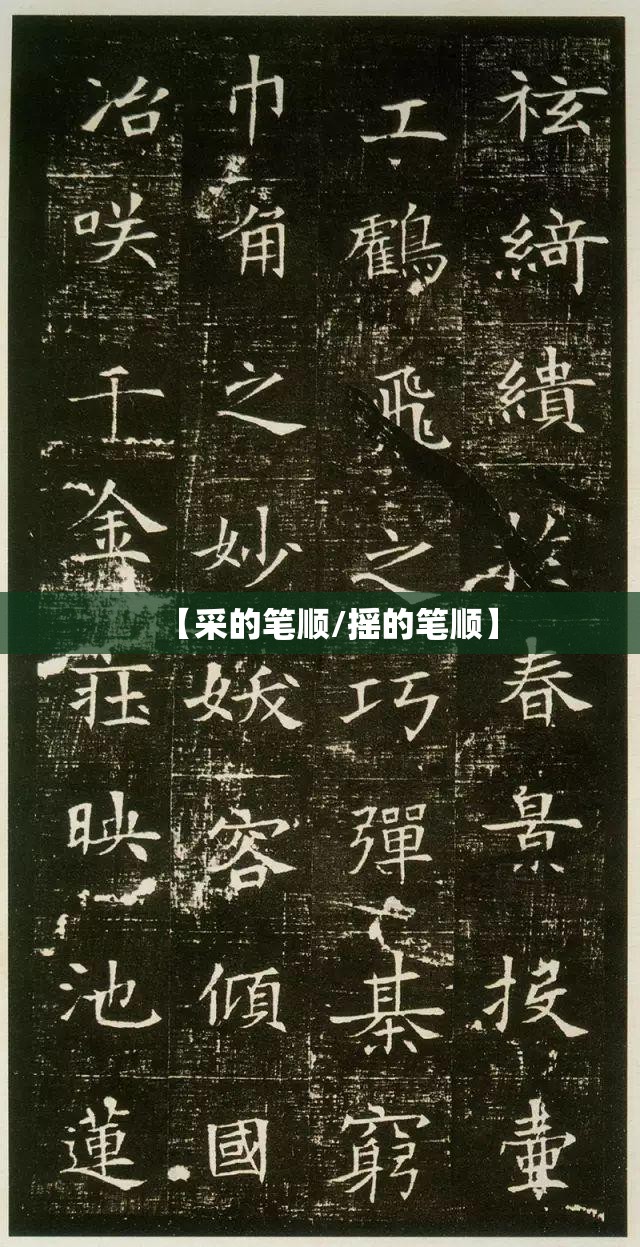 【采的笔顺/摇的笔顺】
袨綺繢於春景投壺
工鸖飛之巧彈棊窮
巾角之妙娥容傾國
冶咲千金莊映池蓮